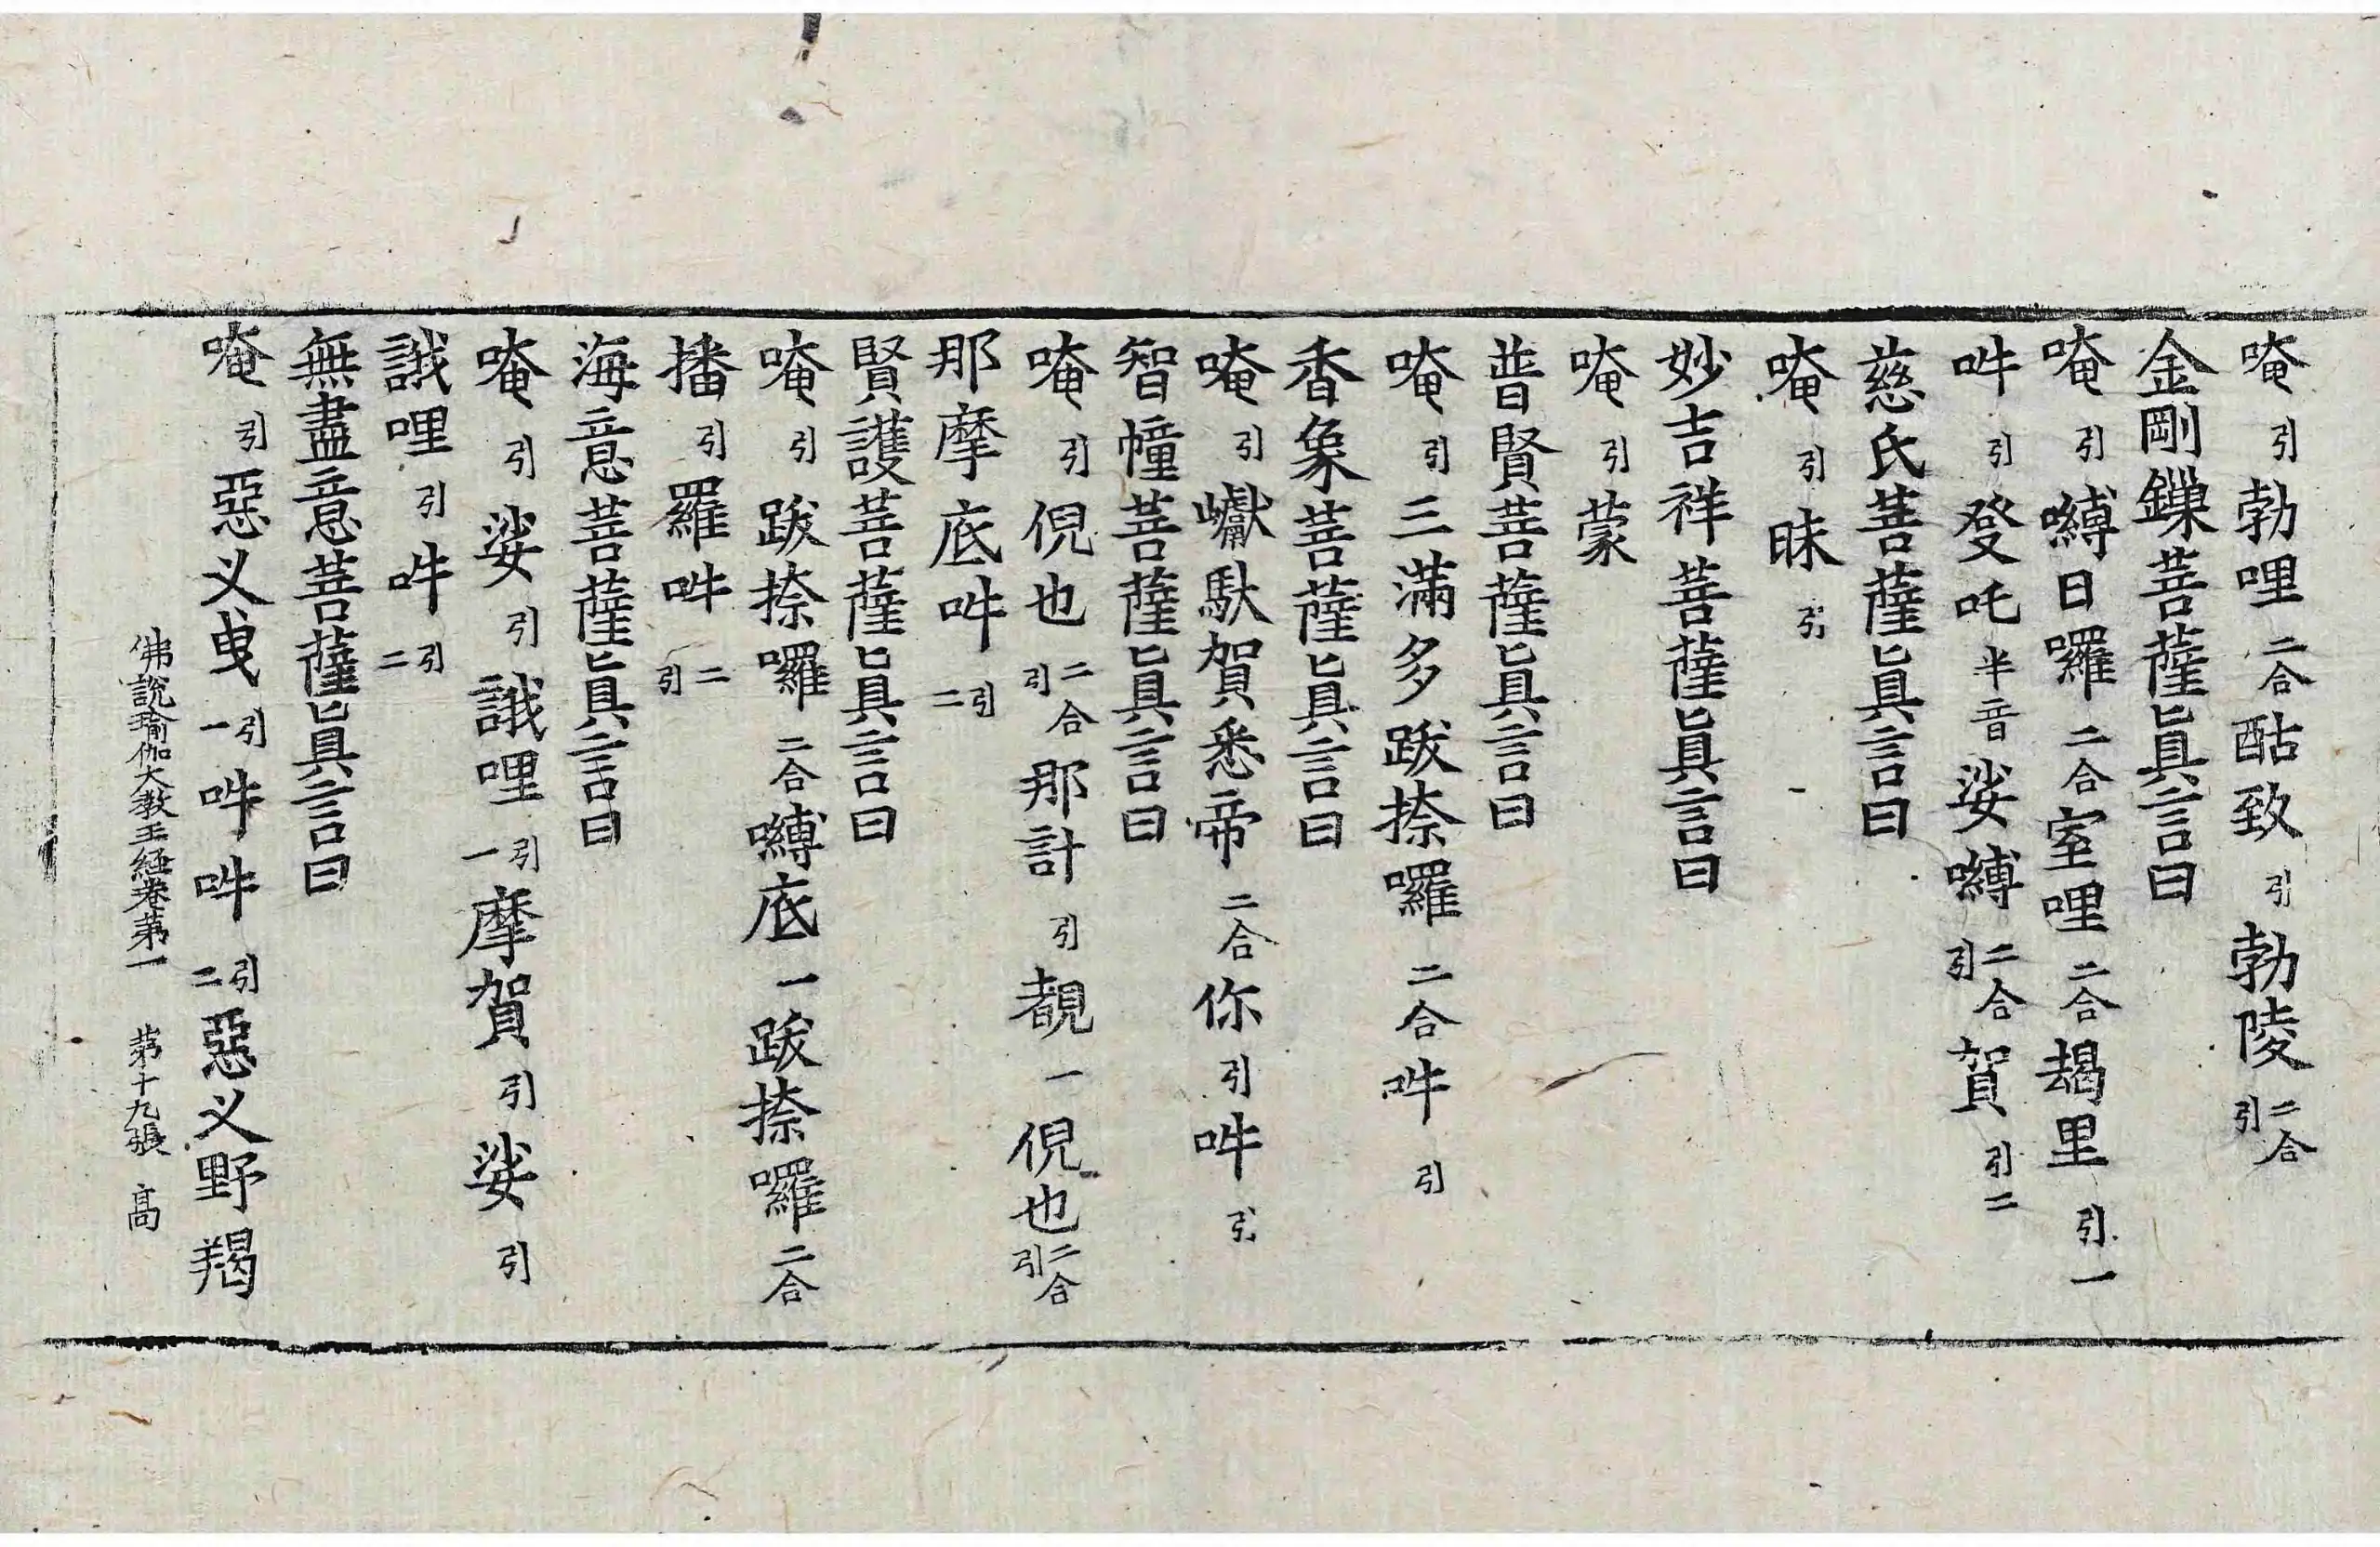 唵引勃哩二合酤致引勃陵二合引
金剛鏁菩薩眞言曰
唵引嚩日囉二合室哩二合朅里引一
吽引癹吒半音娑嚩二合引賀引二
慈氏菩薩眞言曰
唵引昧引
妙吉祥菩薩眞言曰
唵引蒙
普賢菩薩眞言曰
唵引三滿多跋捺囉二合吽引
香象菩薩眞言曰
唵引巘馱賀悉帝二合你引吽引
智幢菩薩眞言曰
唵引倪也二合引那計引覩一倪也二合引
那摩底吽引二
賢護菩薩眞言曰
唵引跋捺囉二合嚩底一跋捺囉二合
播引羅吽二引
海意菩薩眞言曰
唵引娑引誐哩引一摩賀引娑引
誐哩引吽引二
無盡意菩薩眞言曰
唵引惡乂曳引一吽吽引二惡乂野羯
佛說瑜伽大教王經卷第一 第十九張 高